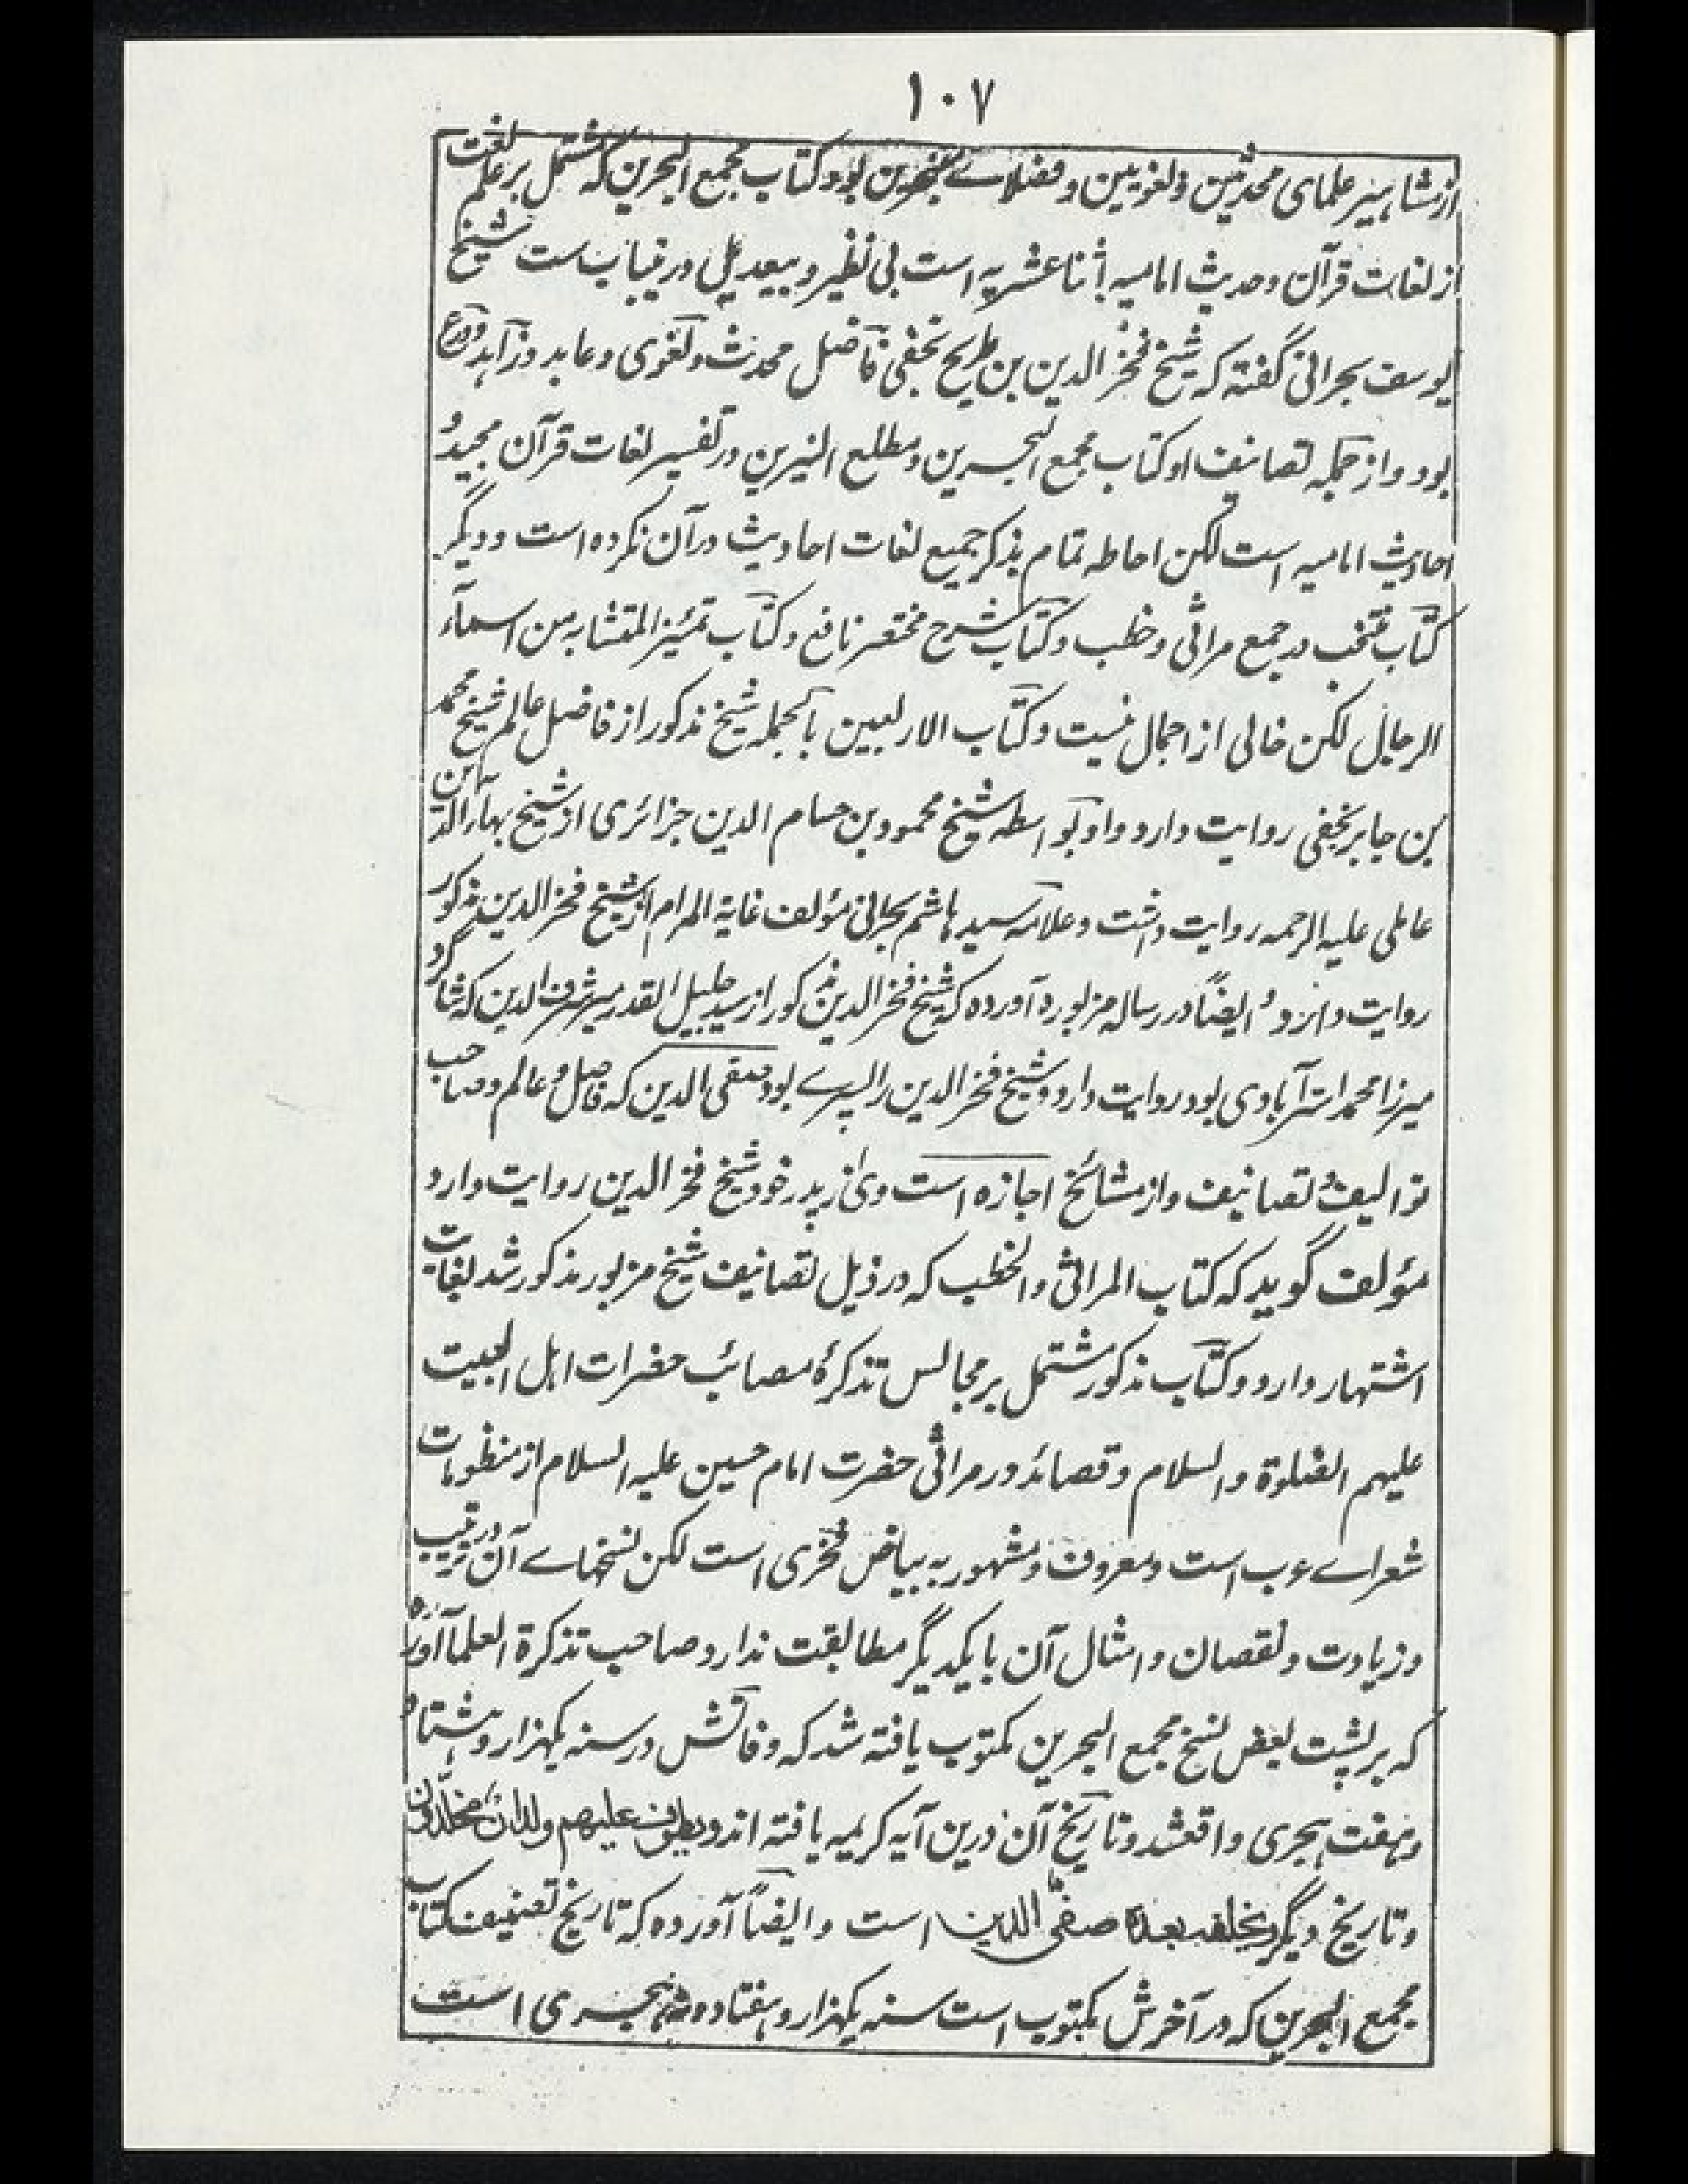 ۱۰۷
از مشاهیر علمای محدثین و لغویین و فضلاے متبحرین بود و کتاب مجمع البحرین که مشتمل بر علم لغت
از لغات قرآن و حدیث امامیه اثنا عشریه است بی نظیر و بیعدیل درینباب ست شیخ
یوسف بحرانی گفته که شیخ فخر الدین بن طریح نجفی فاضل محدث و لغوی و عابد و زاهد و ورع
بود و از جمله تصانیف او کتاب مجمع البحرین و مطلع النیرین در تفسیر لغات قرآن مجید و
احادیث امامیه است لکن احاطه تمام بذکر جمیع لغات احادیث درآن نکرده است و دیگر
کتاب منتخب در جمع مراثی و خطب و کتاب شرح مختصر نافع و کتاب تمئیز المتشابه من اسماء
الرجال لکن خالی از اجمال نیست و کتاب الاربعین بالجمله شیخ مذکور از فاضل عالم شیخ محمد
بن جابر نجفی روایت دارد و او بواسطه شیخ محمود بن حسام الدین جزائری از شیخ بهاء الدین
عاملی علیه الرحمه روایت داشت و علامه سید هاشم بحرانی مؤلف غایة المرام از شیخ فخر الدین مذکور
روایت دارد و ایضاً در رساله مزبوره آورده که شیخ فخر الدین مذکور از سید جلیل القدر میر شرف الدین که شاگرد
میرزا محمد استرآبادی بود روایت دارد و شیخ فخر الدین را پسرے بود صفی الدین که فاضل و عالم و صاحب
توالیف و تصانیف و از مشائخ اجازه است وی از پدر خود شیخ فخر الدین روایت دارد
مؤلف گوید که کتاب المراثی والخطب که در ذیل تصانیف شیخ مزبور مذکور شد بغایت
اشتهار دارد و کتاب مذکور مشتمل بر مجالس تذکرۀ مصائب حضرات اهل البیت
علیهم الصلوة والسلام و قصائد در مراثی حضرت امام حسین علیه السلام از منظومات
شعراے عرب است و معروف و مشهور به بیاض فخری است لکن نسخهاے آن در ترتیب
و زیادت و نقصان و امثال آن با یکدیگر مطابقت ندارد و صاحب تذکرة العلما آورده
که بر پشت بعض نسخ مجمع البحرین مکتوب یافته شد که وفاتش در سنه یکهزار و هشتاد
و هفت هجری واقعشد و تاریخ آن درین آیه کریمه یافته اند ویطوف علیهم ولدان مخلّدون
و تاریخ دیگر یخلف بعده صفی الدین است و ایضاً آورده که تاریخ تصنیف کتاب
مجمع البحرین که در آخرش مکتوب است سنه یکهزار و هفتاد و نه هجری است